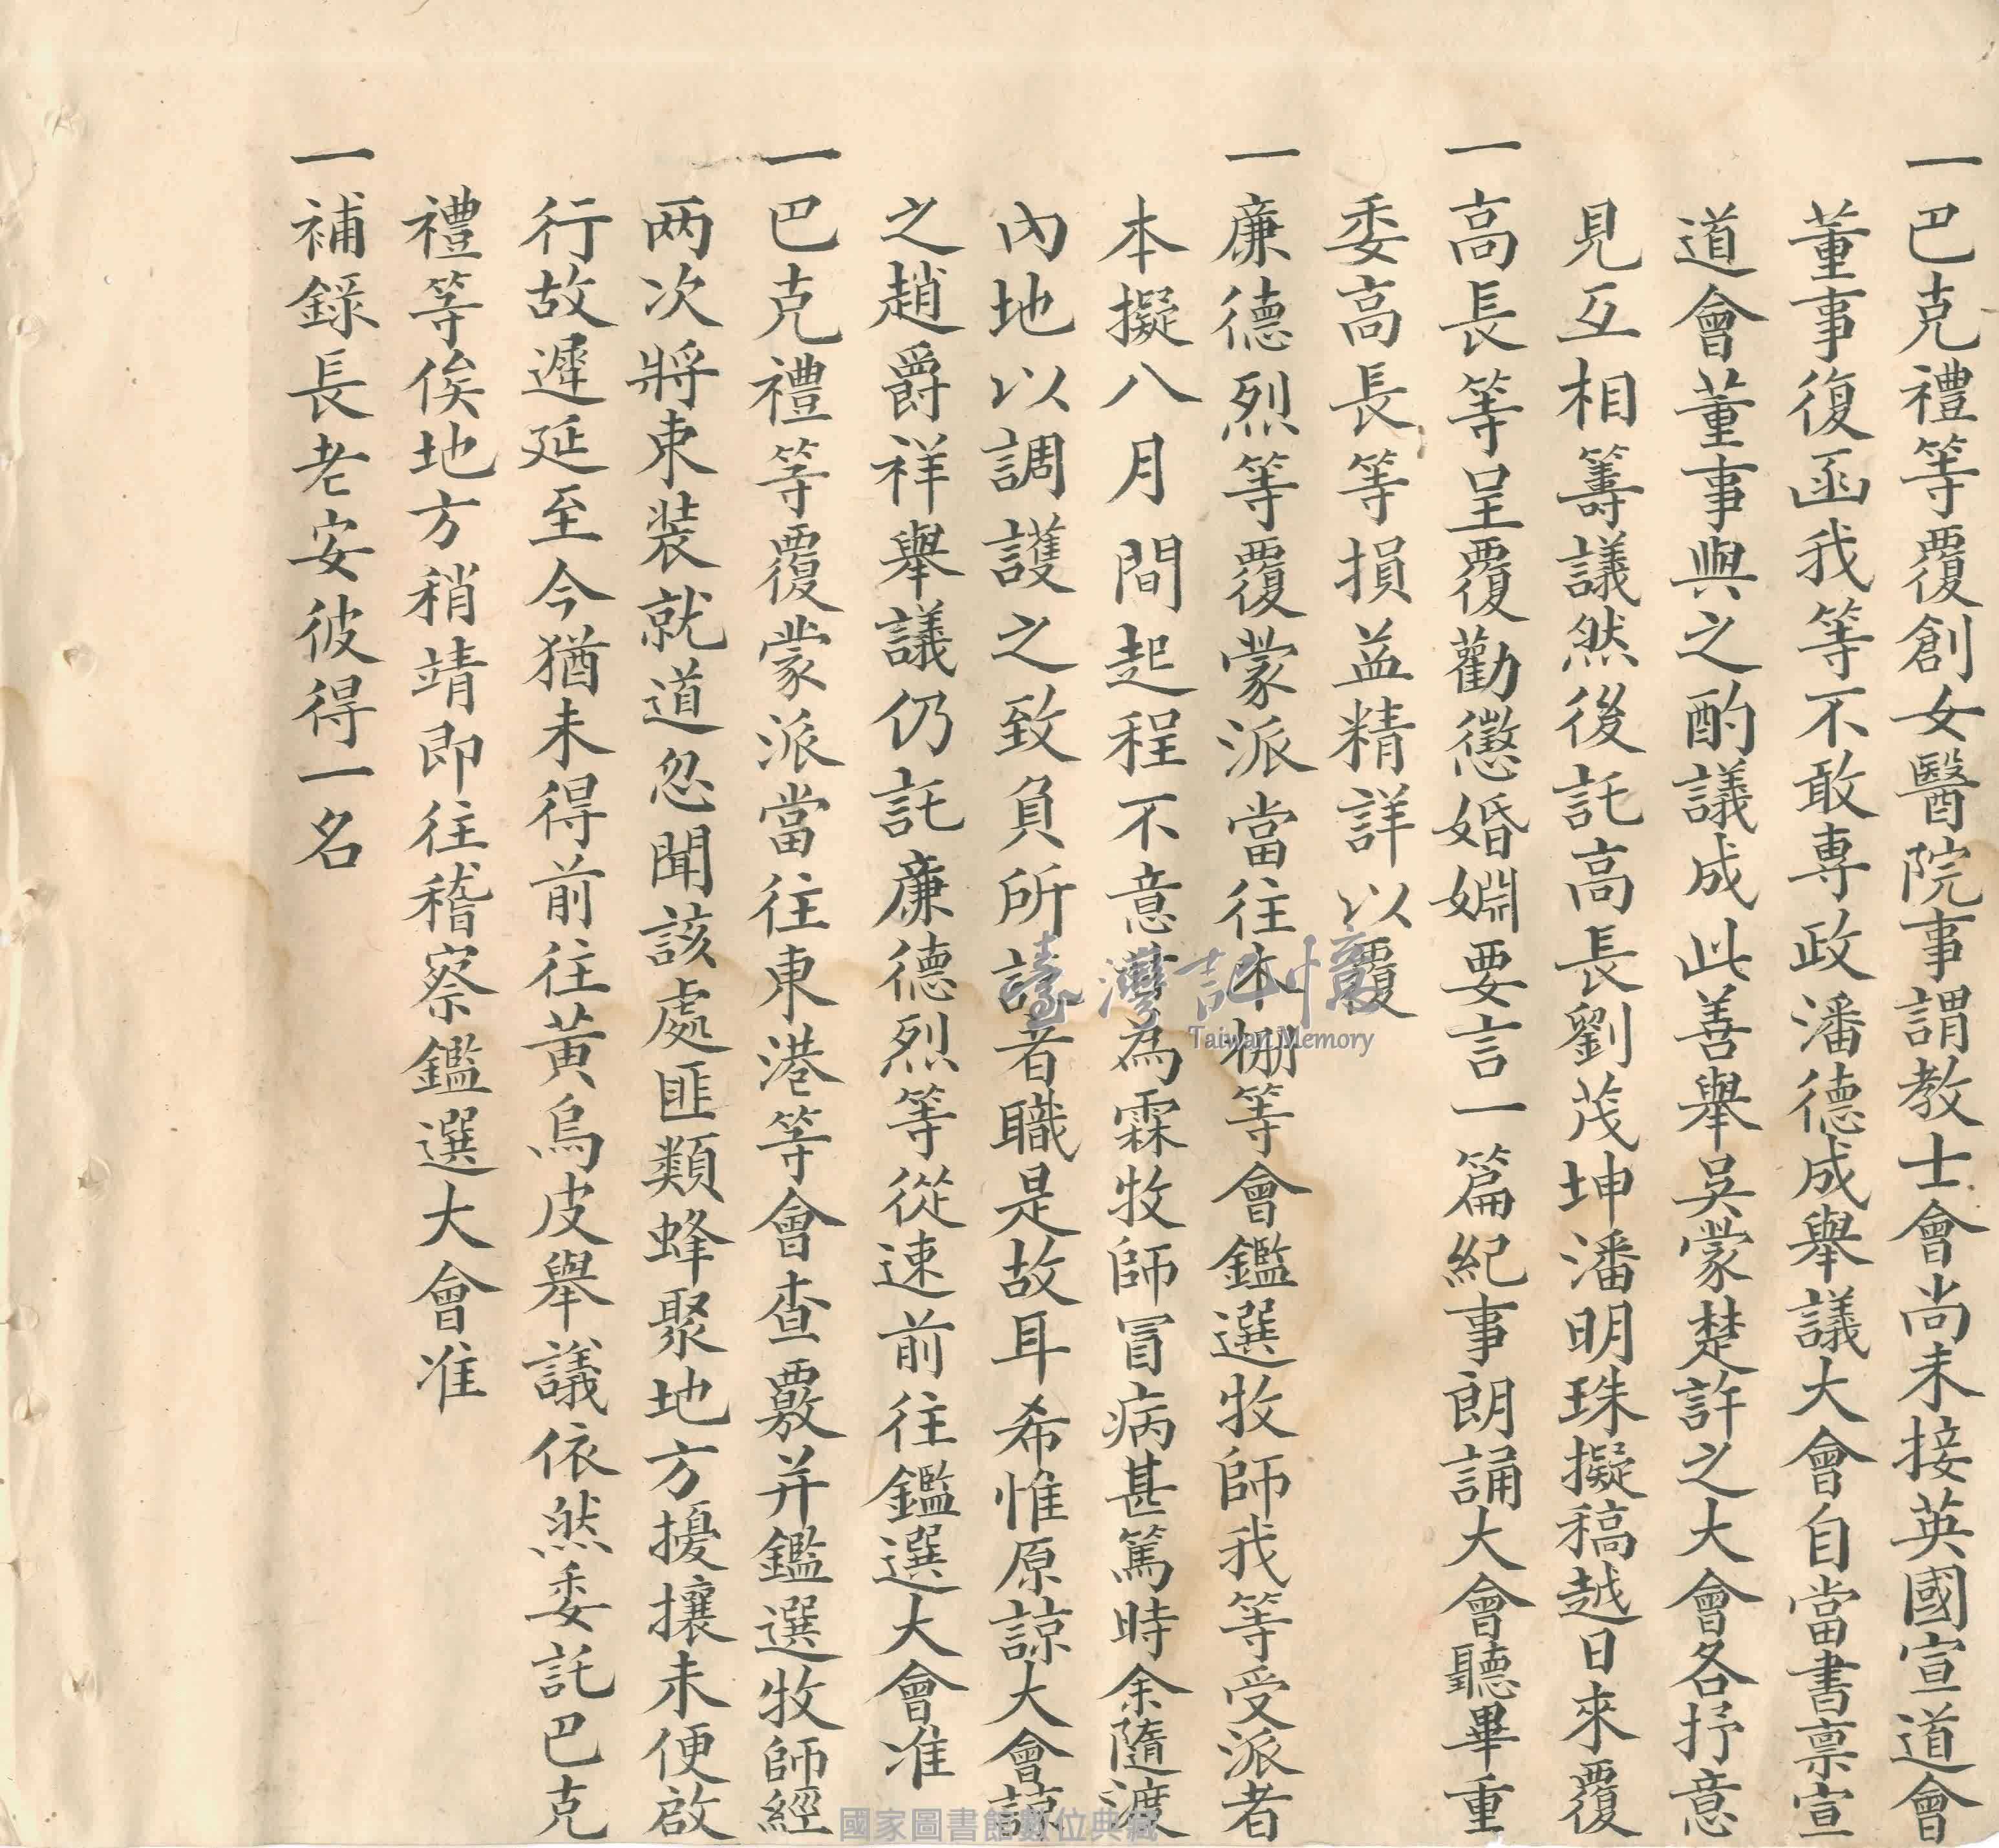 一巴克禮等覆創女醫院事謂教士會尚未接英國宣道會
董事復函我等不敢專政潘德成舉議大會自當書禀宣
道會董事與之酌議成此善舉吳蒙楚許之大會各抒意
見互相籌議然後託高長劉茂坤潘明珠擬稿越日來覆
一高長等呈覆勸懲婚婣要言一篇紀事朗誦大會聽畢重
委高長等損益精詳以覆
一廉德烈等覆蒙派當往木柵等會鑑選牧師我等受派者
本擬八月間起程不意為霖牧師冒病甚篤時余隨渡
內地以調護之致負所託者職是故耳希惟原諒大會諒
之趙爵祥舉議仍託廉德烈等從速前往鑑選大會准
一巴克禮等覆蒙派當往東港等會查覈并鑑選牧師經
两次將束装就道忽聞該處匪類蜂聚地方擾攘未便啟
行故遲延至今猶未得前往黃烏皮舉議依然委託巴克
禮等俟地方稍靖即往稽察鑑選大會准
一補錄長老安彼得一名
臺灣記憶
Taiwan Memory
國家圖書館數位典藏